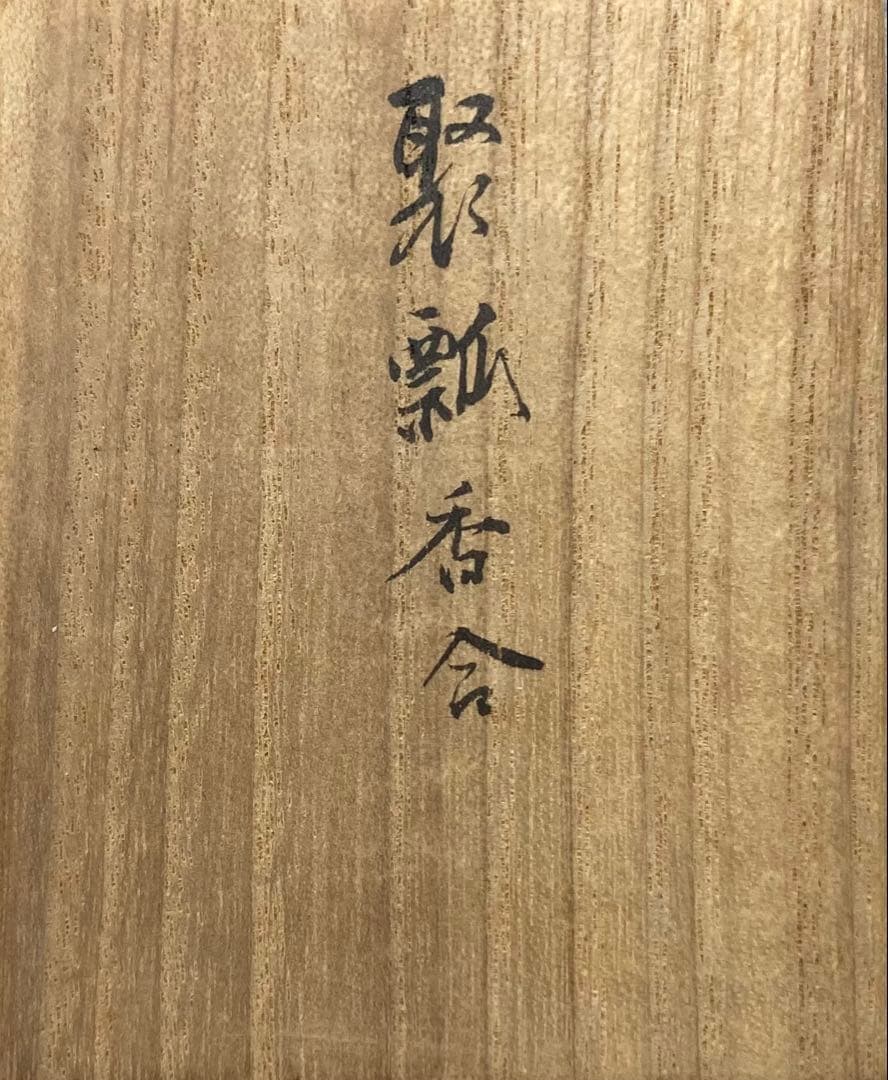 聚瓢香合